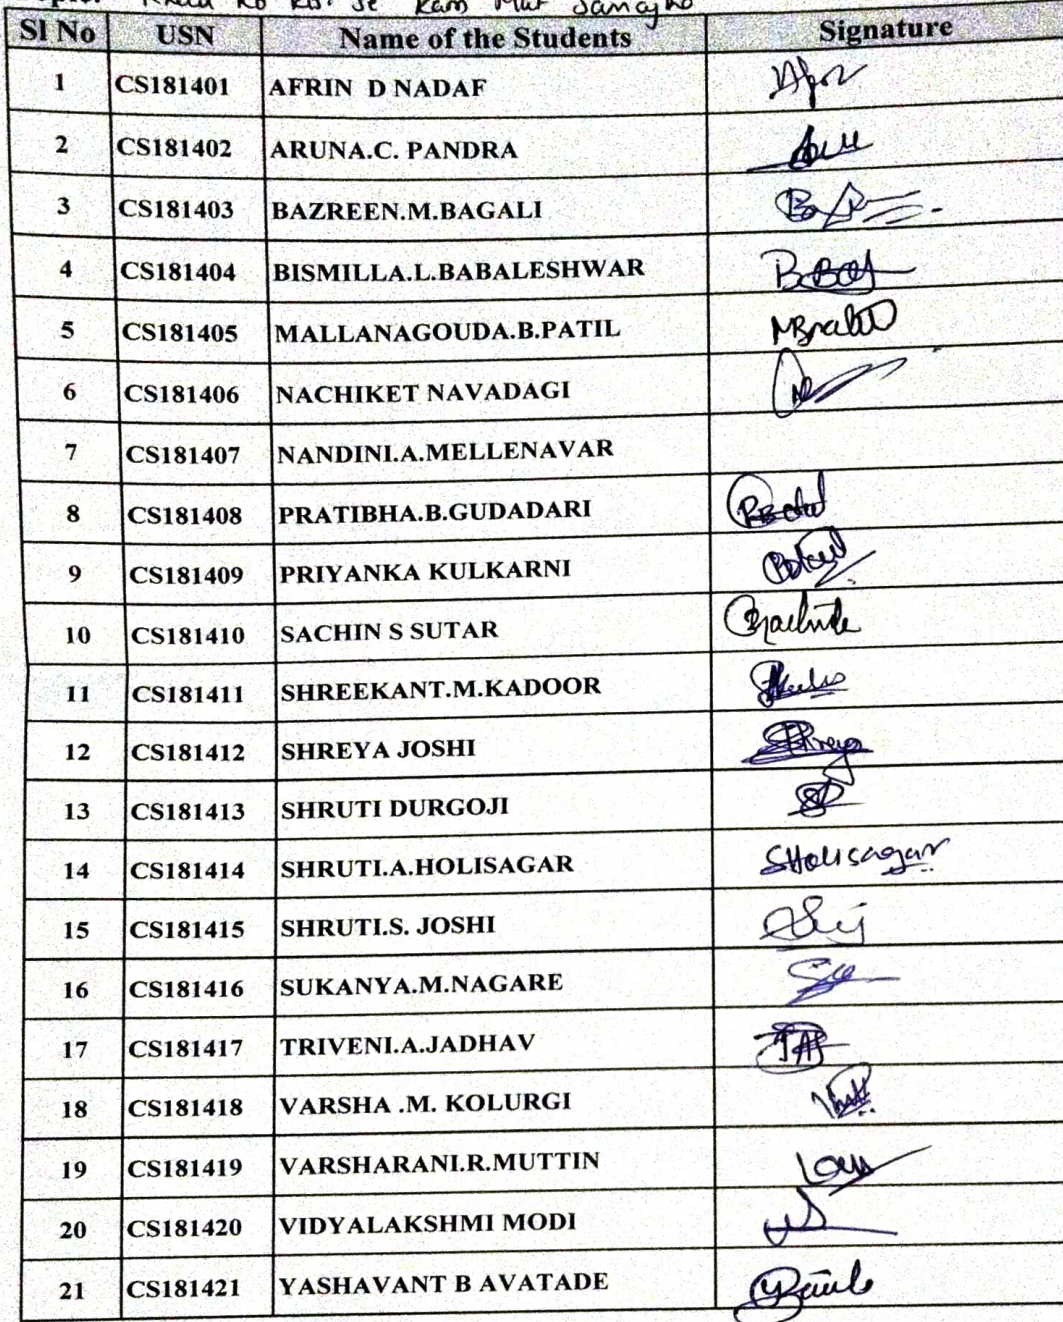 Ko se Kam Mat Samajho
Sl No USN Name of the Students Signature
1 CS181401 AFRIN D NADAF
2 CS181402 ARUNA.C. PANDRA
3 CS181403 BAZREEN.M.BAGALI
4 CS181404 BISMILLA.L.BABALESHWAR
5 CS181405 MALLANAGOUDA.B.PATIL
6 CS181406 NACHIKET NAVADAGI
7 CS181407 NANDINI.A.MELLENAVAR
8 CS181408 PRATIBHA.B.GUDADARI
9 CS181409 PRIYANKA KULKARNI
10 CS181410 SACHIN S SUTAR
11 CS181411 SHREEKANT.M.KADOOR
12 CS181412 SHREYA JOSHI Shreya
13 CS181413 SHRUTI DURGOJI
14 CS181414 SHRUTI.A.HOLISAGAR SHolisagar
15 CS181415 SHRUTI.S. JOSHI
16 CS181416 SUKANYA.M.NAGARE
17 CS181417 TRIVENI.A.JADHAV
18 CS181418 VARSHA .M. KOLURGI
19 CS181419 VARSHARANI.R.MUTTIN
20 CS181420 VIDYALAKSHMI MODI
21 CS181421 YASHAVANT B AVATADE